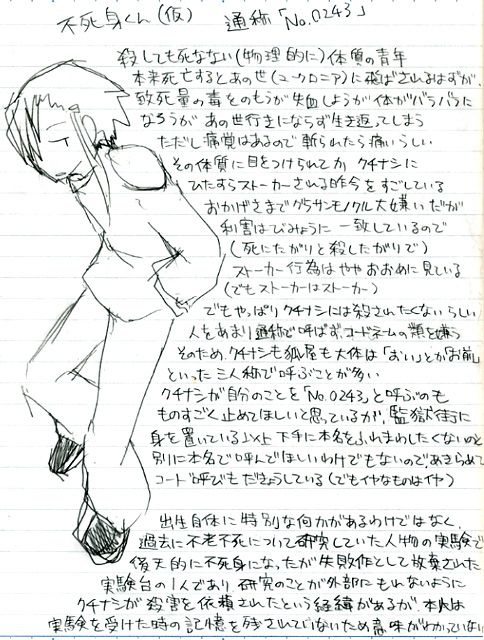 不死身くん(仮) 通称「No.0243」
殺しても死なない(物理的に)体質の青年
本来死亡するとあの世(ユークロニア)に飛ばされるはずが、
致死量の毒をのもうが失血しようが体がバラバラに
なろうがあの世行きにならず生き返ってしまう
ただし痛覚はあるので斬られたら痛いらしい
その体質に目をつけられてか、クチナシに
ひたすらストーカーされる昨今をすごしている
おかげさまでグラサンモノクル大嫌いだが
利害はびみょうに一致しているので
(死にたがりと殺したがりで)
ストーカー行為はややおおめに見ている
(でもストーカーはストーカー)
でもやっぱりクチナシには殺されたくないらしい
人をあまり通称で呼ばず、コードネームの類を嫌う
そのため、クチナシも狐屋も大体は「おい」とか「お前」
といった三人称で呼ぶことが多い
クチナシが自分のことを「No.0243」と呼ぶのも
ものすごく止めてほしいと思っているが、監獄街に
身を置いている以上下手に本名をふれまわしたくないのと
別に本名で呼んでほしいわけでもないので、あきらめて
コード呼びもだきょうしている(でもイヤなものはイヤ)
出生自体に特別な何かがあるわけではなく、
過去に不老不死について研究していた人物の実験で
後天的に不死身になったが失敗作として放棄された
実験台の1人であり研究のことが外部にもれないように
クチナシが殺害を依頼されたという経緯があるが、本人は
実験を受けた時の記憶を残されていないため意味がわかっていない